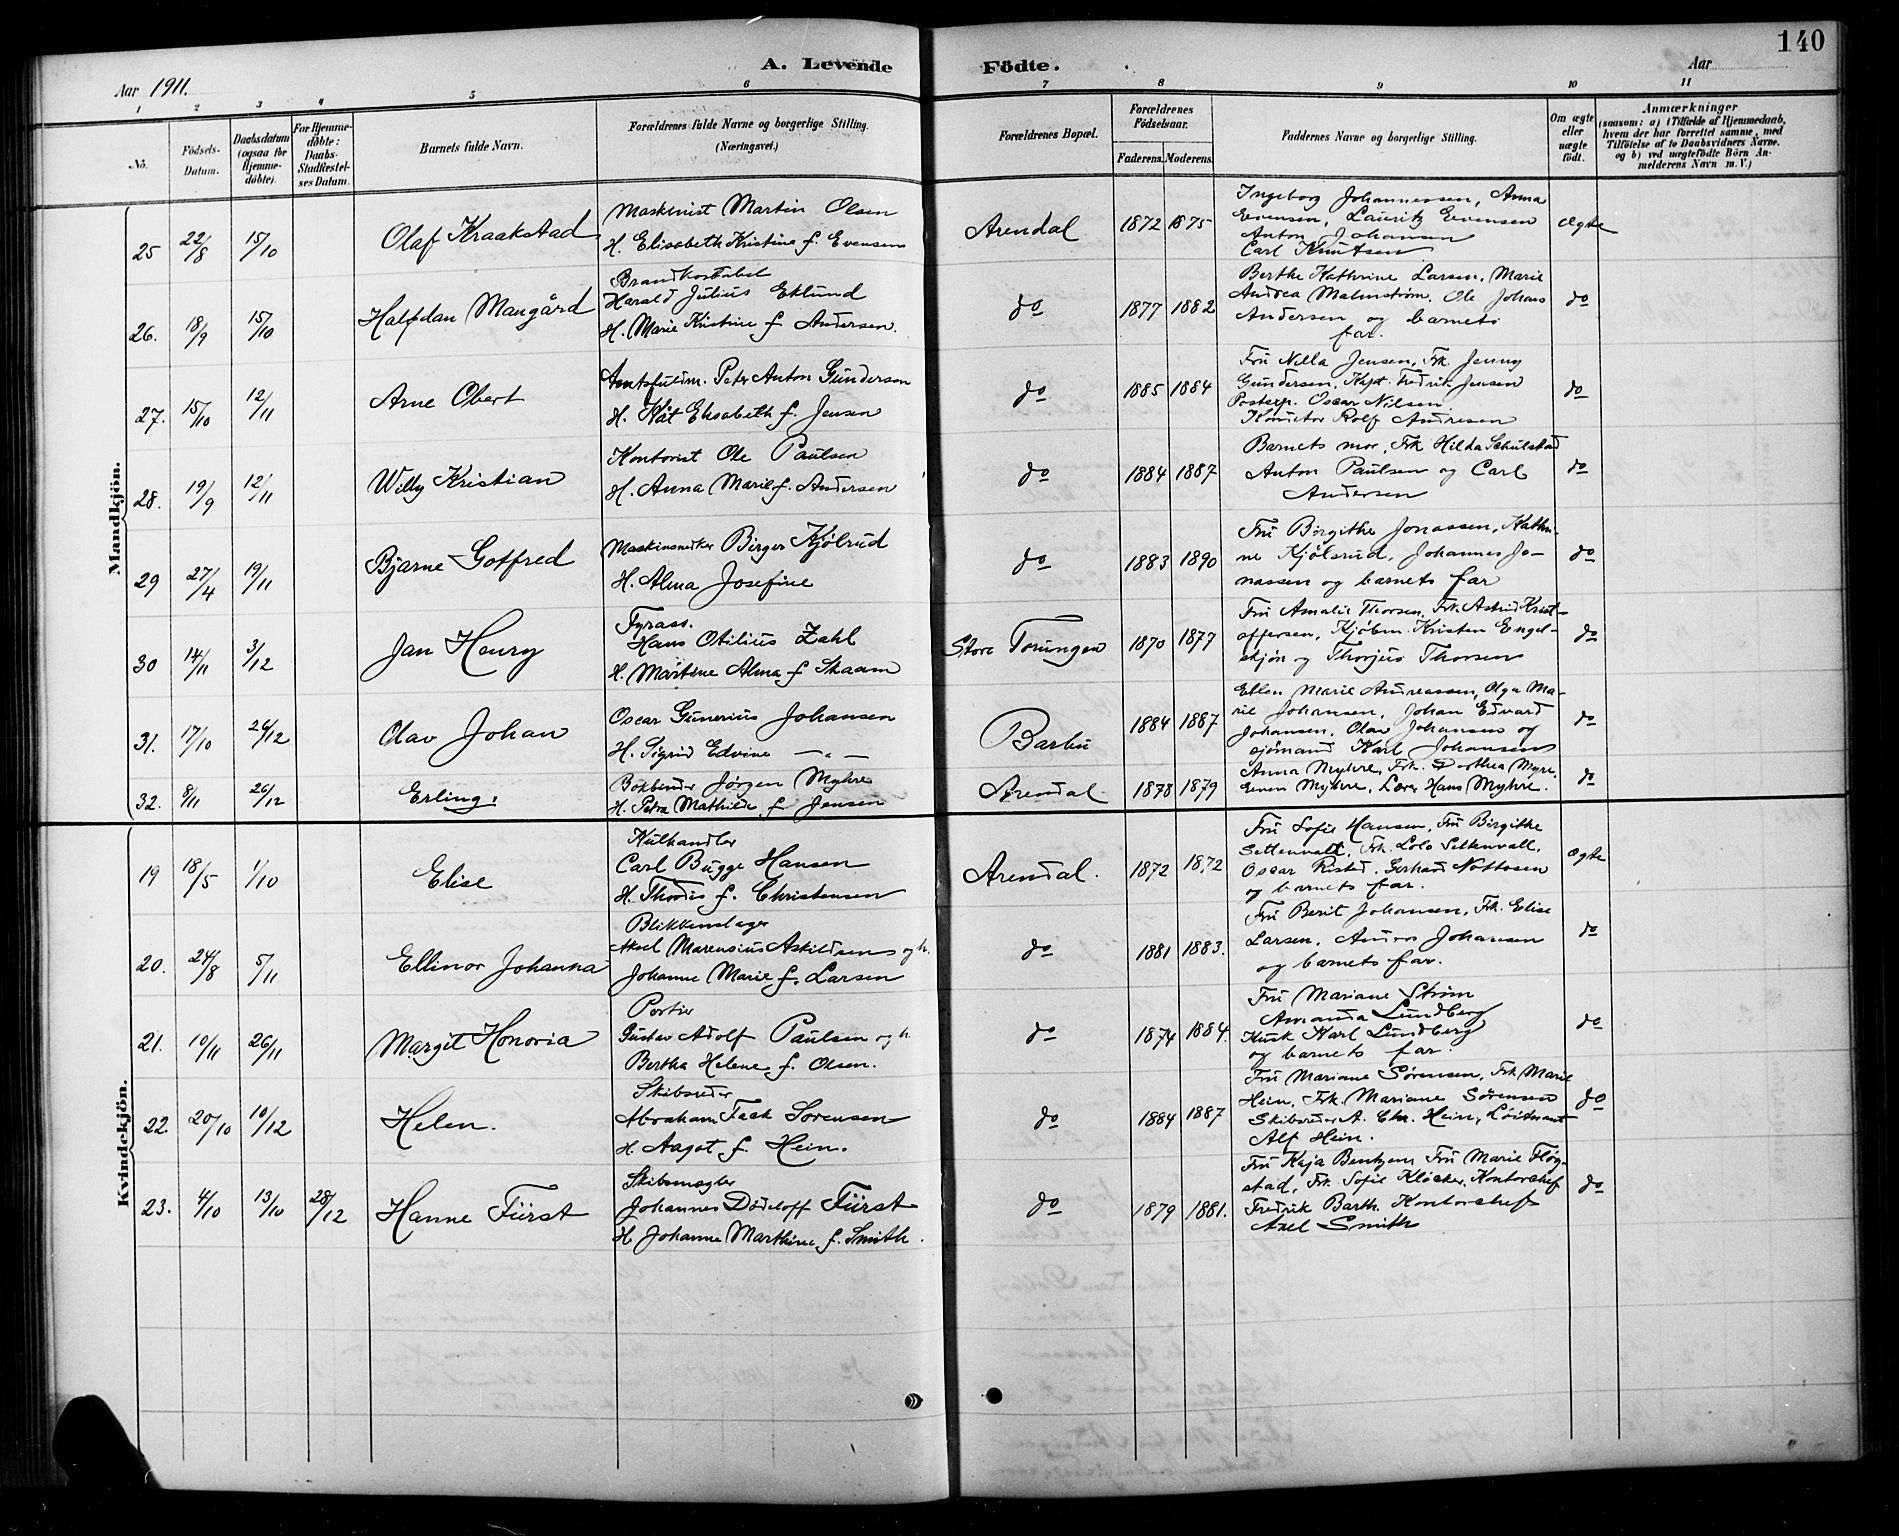 140
A. Levende Födte.
Aar 1911.
Aar
1 2 3 4 5 6 7 8 9 10 11
Nö.
Födsels-
Datum.
Daabsdatum
(ogsaa for
Hjemme-
döbte).
For Hjemme-
döbte:
Daabs-
Stadfæstel-
ses Datum.
Barnets fulde Navn.
Forældrenes fulde Navne og borgerlige Stilling.
(Næringsvei.)
Forældrenes Bopæl.
Forældrenes
Födselsaar.
Faderens. Moderens.
Faddernes Navne og borgerlige Stilling.
Om ægte
eller
uægte
födt.
Anmærkninger
(saasom: a) i Tilfælde af Hjemmedaab,
hvem der har forrettet samme, med
Tilföielse af to Daabsvidners Navne.
og b) ved uægtefödte Börn An-
melderens Navn m. V.)
Mandkjön.
25 22/8 15/10 Olaf Kraakstad
Maskinist Martin Olsen
H. Elisabeth Kristine f. Evensen
Arendal 1872 1875
Ingeborg Johannessen, Anna
Evensen, Lauritz Evensen
Anton Johansen
Carl Knutsen
Ægte
26. 18/9 15/10 Halfdan Mangård
Brandkonstabel
Harald Julius Eklund
H. Marie Kristine f. Andersen.
do 1877 1882
Berthe Kathrine Larsen, Marie
Andrea Malmstrøm, Ole Johans
Andersen og barnets
far.
do
27. 15/10 12/11 Arne Obert
Amtsfuldm. Peter Anton Gundersen
H. Kåt Elisabeth f. Jensen
do 1885 1884
Fru Nella Jensen, Frk. Jenny
Gundersen, Kapt. Fredrik Jensen
Postexp. Oscar Nilsen
Rolf Andresen
do
28. 19/9 12/11 Willy Kristian
Kontorist Ole Paulsen
H. Anna Marie f. Andersen
do 1884 1887
Barnets mor, Frk Hilda Schulstad
Anton Paulsen og Carl
Andersen
do
29 27/4 19/11 Bjarne Gotfred
Maskinsnedker Birger Kjölsrud
H. Alma Josefine
do 1883 1890
Fru Birgithe Jonassen, Kathri-
ne Kjölsrud, Johannes Jo-
nassen og barnets far
do
30 14/11 3/12 Jan Henry
Fyrass.
Hans Otilius Zahl
H. Martine Alma f Skaam
Store Torungen 1870 1877
Fru Amalie Thorsen, Frk. Astrid Krist-
offersen, Kjöbm. Kristen Engel-
skjön og Thorjus Thorsen
do
31. 17/10 26/12 Olav Johan
Oscar Gunerius Johansen
H. Sigrid Edvine — „ —
Barbu 1884 1887
Ellen Marie Andreassen, Olga Ma-
rie Johansen, Johan Edvard
Johansen, Olav Johansen og
sjömand Karl Johansen
do
32. 8/11 26/12 Erling.
Bokbinder Jørgen Myhre
H. Petra Mathilde f Jensen
Arendal 1878 1879
Anna Myhre, Frk. Dorthea Myre.
Even Myhre, Lærer Hans Myhre.
do
Kvindekjön.
19 18/5 1/10 Elise
Kulhandler
Carl Bugge Hansen
H. Thordis f. Christensen
Arendal. 1872 1872
Fru Sofie Hansen, Fru Birgithe
Settenvall, Frk. Lolo Settenvall,
Oscar Risted, Gerhard Nottosen
og barnets far.
Ægte
20. 24/8 5/11 Ellinor Johanna
Blikkenslager
Aksel Marensius Askildsen og h.
Johanne Marie f. Larsen
do 1881 1883.
Fru Berit Johansen, Frk. Elise
Larsen, Anders Johansen
og barnets far.
do
21. 10/11 26/11 Margit Honoria
Portier
Gustav Adolf Paulsen og h.
Bertha Helene f. Olsen.
do 1874 1884.
Fru Mariane Strøm
Amanda Lundberg
Kusk Karl Lundberg
og barnets far.
do
22. 20/10 10/12 Helen.
Skibsreder
Abraham Falk Sørensen
H. Aagot f. Hein.
do 1884 1887
Fru Mariane Sørensen, Frk Marie
Hein, Frk. Mariane Sørensen
Skibsreder A. Chr. Hein, Löitnant
Alf Hein.
do
23. 4/10 13/10 28/12 Hanne Fürst
Skibsmægler
Johannes Dödeloff Fürst
H Johanne Marthine f. Smith.
do 1879 1881.
Fru Kaja Bentzen, Fru Marie Fløg-
stad, Frk. Sofie Klöcker, Kontorchef
Fredrik Barth, Kontorchef
Axel Smith
do